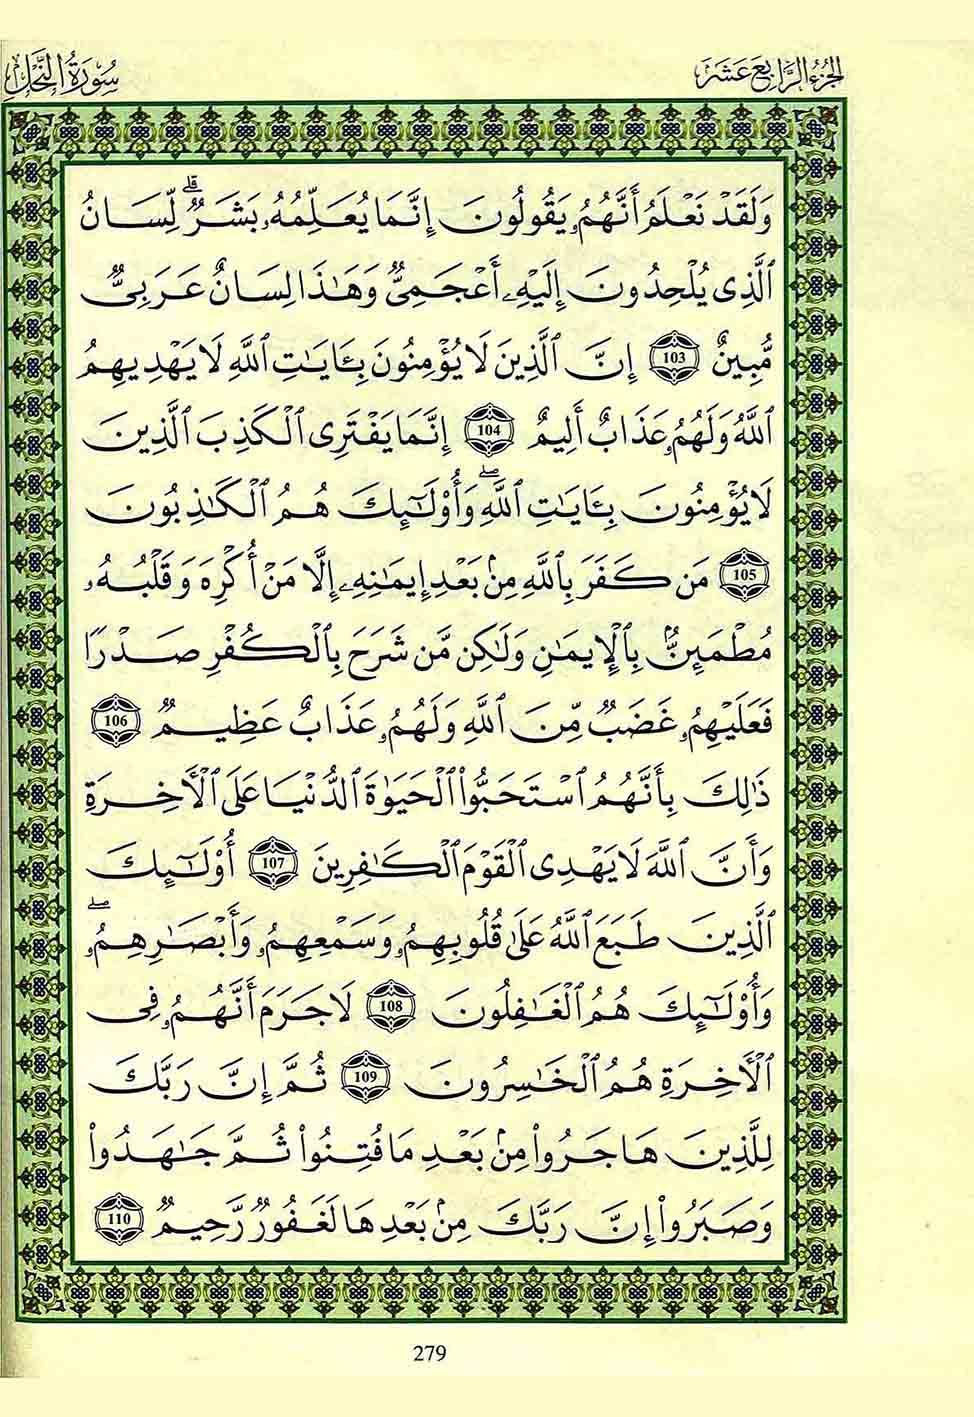 الجزء الرابع عشر
سورة النحل
وَلَقَدْ نَعْلَمُ أَنَّهُمُۥ يَقُولُونَ إِنَّمَا يُعَلِّمُهُۥ بَشَرٌ ۗ لِّسَانُ
ٱلَّذِى يُلْحِدُونَ إِلَيْهِۦ أَعْجَمِىٌّ وَهَٰذَا لِسَانٌ عَرَبِىٌّ
مُّبِينٌ 103 إِنَّ ٱلَّذِينَ لَا يُؤْمِنُونَ بِـَٔايَٰتِ ٱللَّهِ لَا يَهْدِيهِمُ
ٱللَّهُ وَلَهُمُۥ عَذَابٌ أَلِيمٌ 104 إِنَّمَا يَفْتَرِى ٱلْكَذِبَ ٱلَّذِينَ
لَا يُؤْمِنُونَ بِـَٔايَٰتِ ٱللَّهِ ۖ وَأُوْلَٰٓئِكَ هُمُ ٱلْكَٰذِبُونَ
105 مَن كَفَرَ بِٱللَّهِ مِنۢ بَعْدِ إِيمَٰنِهِۦ إِلَّا مَنْ أُكْرِهَ وَقَلْبُهُۥ
مُطْمَئِنٌّۢ بِٱلْإِيمَٰنِ وَلَٰكِن مَّن شَرَحَ بِٱلْكُفْرِ صَدْرًا
فَعَلَيْهِمُۥ غَضَبٌ مِّنَ ٱللَّهِ وَلَهُمُۥ عَذَابٌ عَظِيمٌ 106
ذَٰلِكَ بِأَنَّهُمُ ٱسْتَحَبُّواْ ٱلْحَيَوٰةَ ٱلدُّنْيَا عَلَى ٱلْأَخِرَةِ
وَأَنَّ ٱللَّهَ لَا يَهْدِى ٱلْقَوْمَ ٱلْكَٰفِرِينَ 107 أُوْلَٰٓئِكَ
ٱلَّذِينَ طَبَعَ ٱللَّهُ عَلَىٰ قُلُوبِهِمُۥ وَسَمْعِهِمُۥ وَأَبْصَٰرِهِمُۥ ۖ
وَأُوْلَٰٓئِكَ هُمُ ٱلْغَٰفِلُونَ 108 لَا جَرَمَ أَنَّهُمُۥ فِى
ٱلْأَخِرَةِ هُمُ ٱلْخَٰسِرُونَ 109 ثُمَّ إِنَّ رَبَّكَ
لِلَّذِينَ هَاجَرُواْ مِنۢ بَعْدِ مَا فُتِنُواْ ثُمَّ جَٰهَدُواْ
وَصَبَرُواْ إِنَّ رَبَّكَ مِنۢ بَعْدِهَا لَغَفُورٌ رَّحِيمٌ 110
279